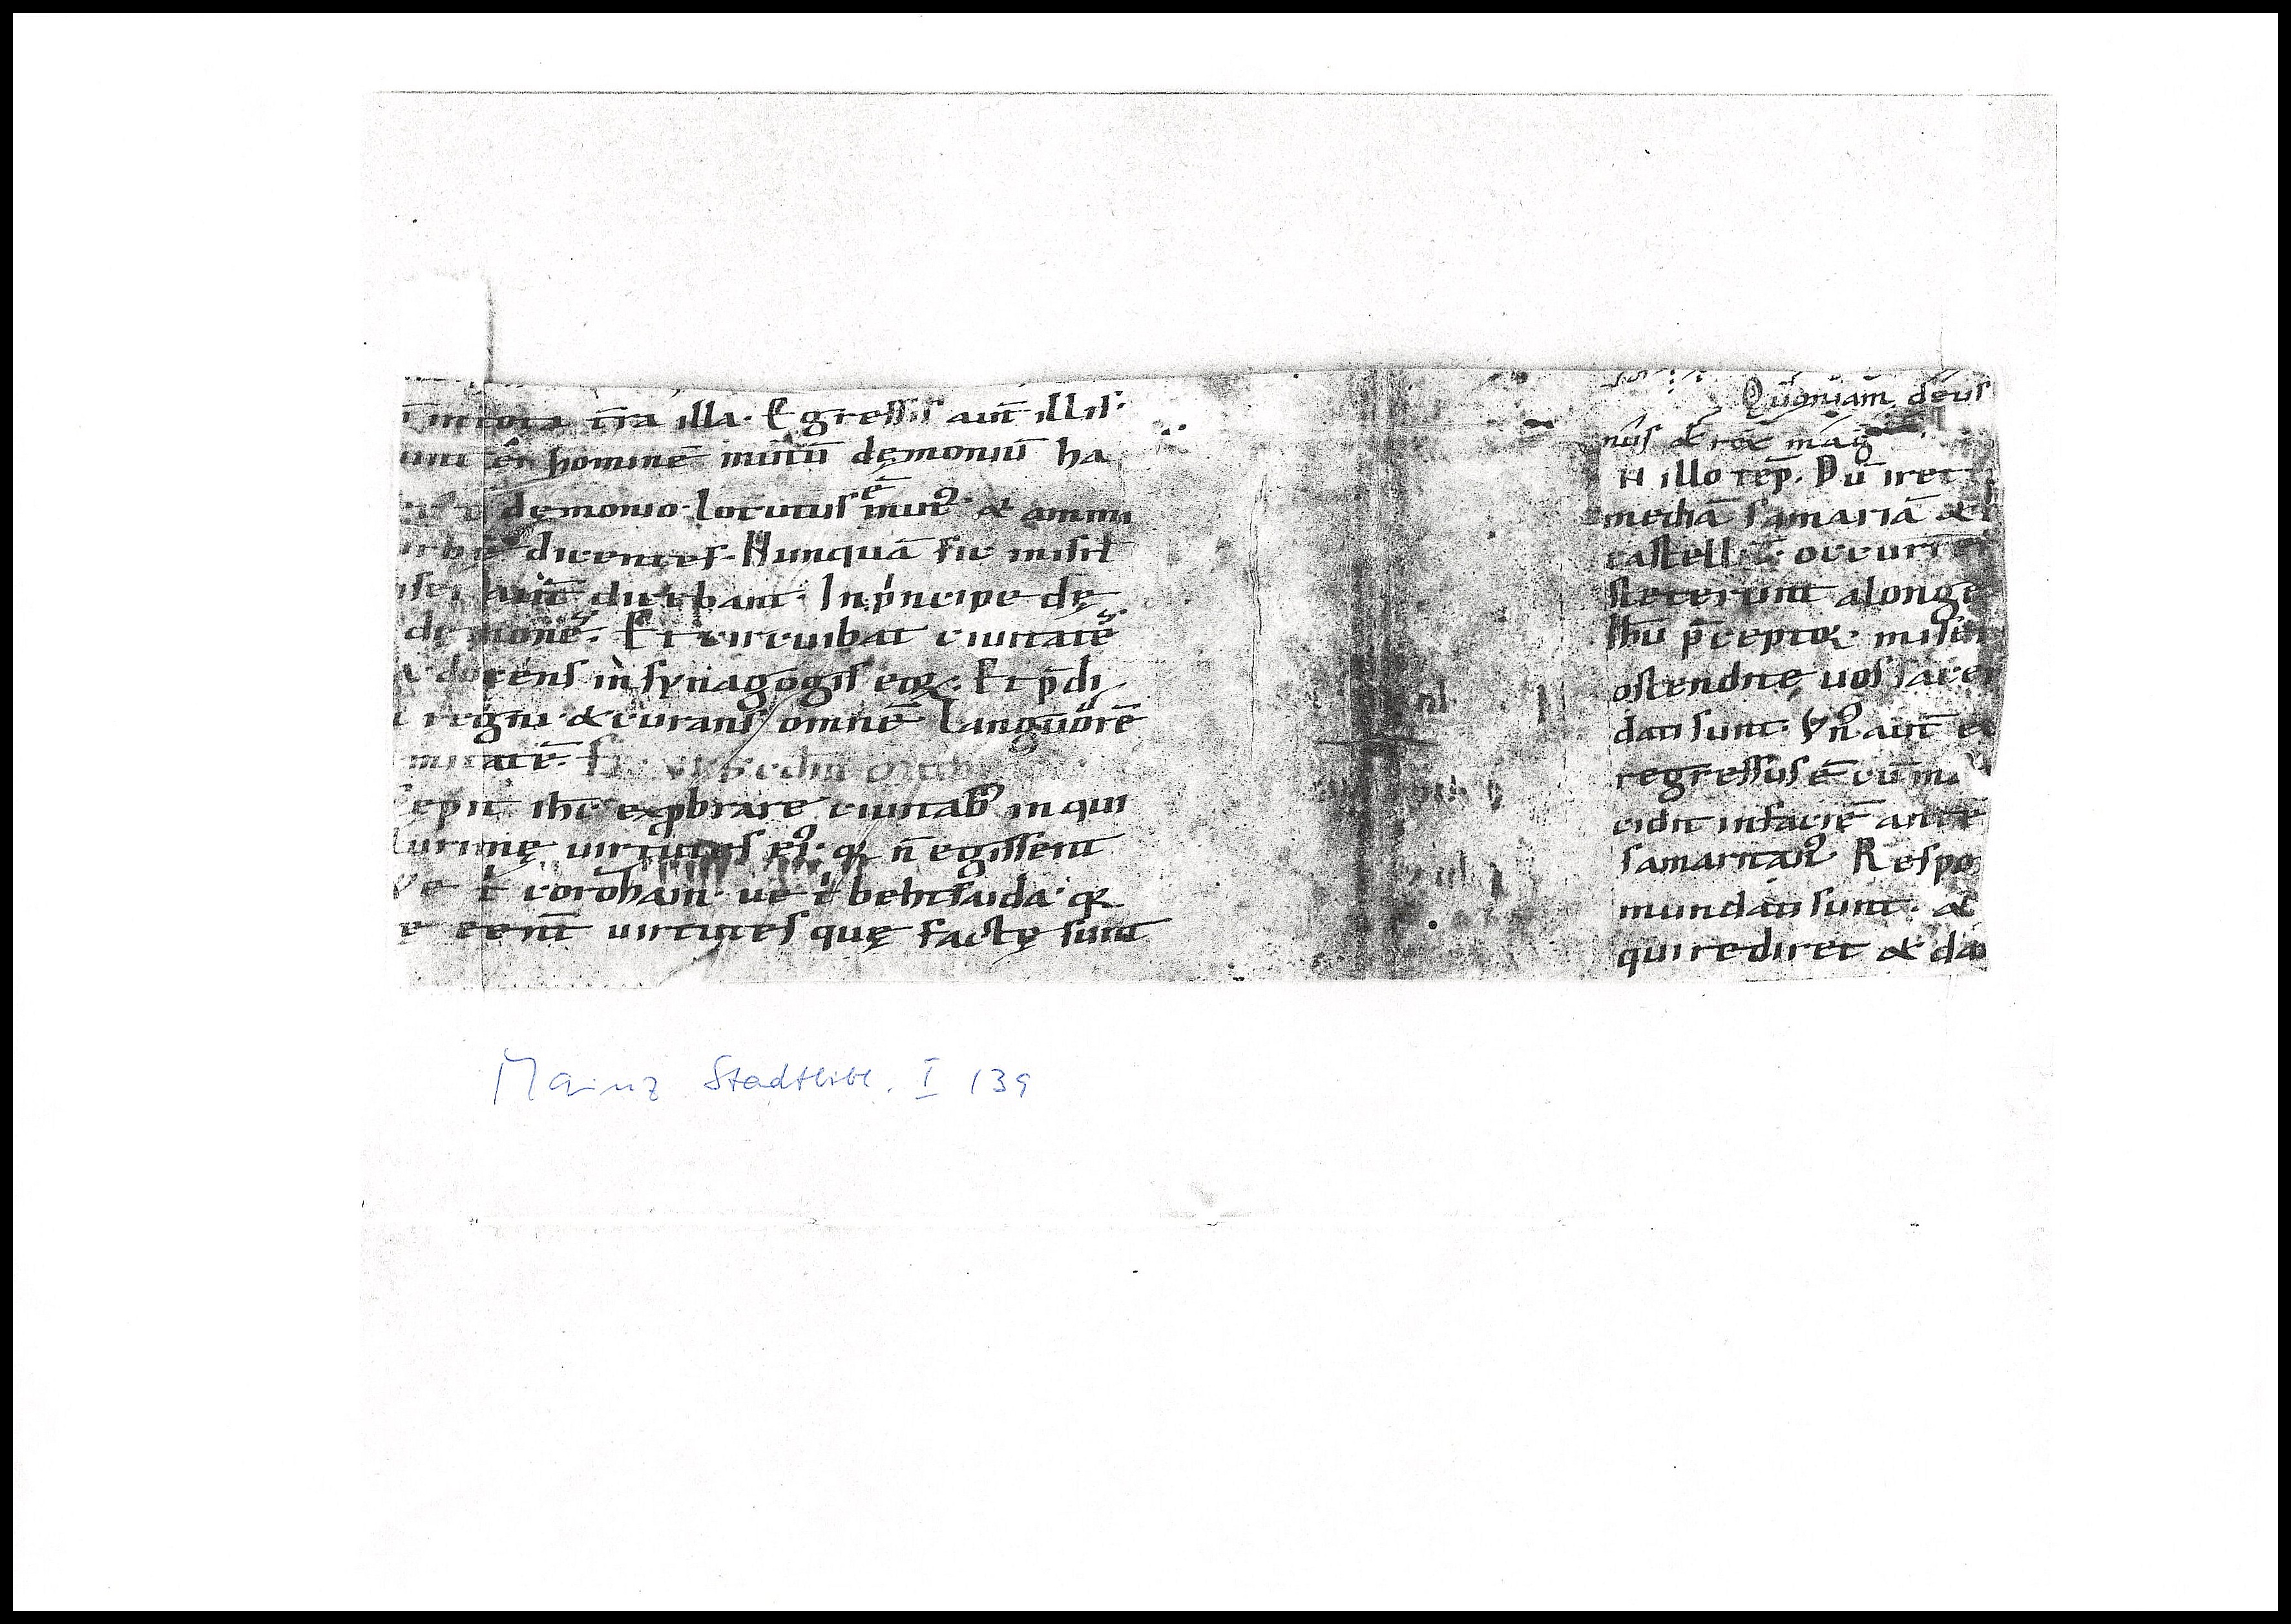 in tota tr̄a illa. Egressis aut̄ illis.
hominē mutū dęmoniū ha
dęmonio. locutus ē mutꝰ & ammi
dicentes. Nunquā sic in isrl̄
aut̄ dicebant. In pⁱncipe dę
demonē. Et circuibat ciuitatē
docens in synagogis eoꝝ. Et p̄di
regni. & curans omnē languorē
mitatē.
cepit ihc̄ exp̱brare ciuitabꝰ in qui
plurimę uirtutes eiꝰ. qꝛ n̄ egissent
Ve t̄ corozain. ue t̄ bethsaida. qꝛ
uirtutes quę factę sunt
Quoniam deus
nus & rex mag
N illo tēp. Dū iret
mediā samariā &
castell occurrer
steterunt alonge
Ihū p̄ceptoꝝ. miser
ostendite uos sacer
dati sunt. Vnꝰ aut̄ e
regressus ē cū ma
cidit in faciē ante
samaritanꝰ. Respo
mundati sunt. &
qui rediret & da
Mainz Stadtbibl. I 139